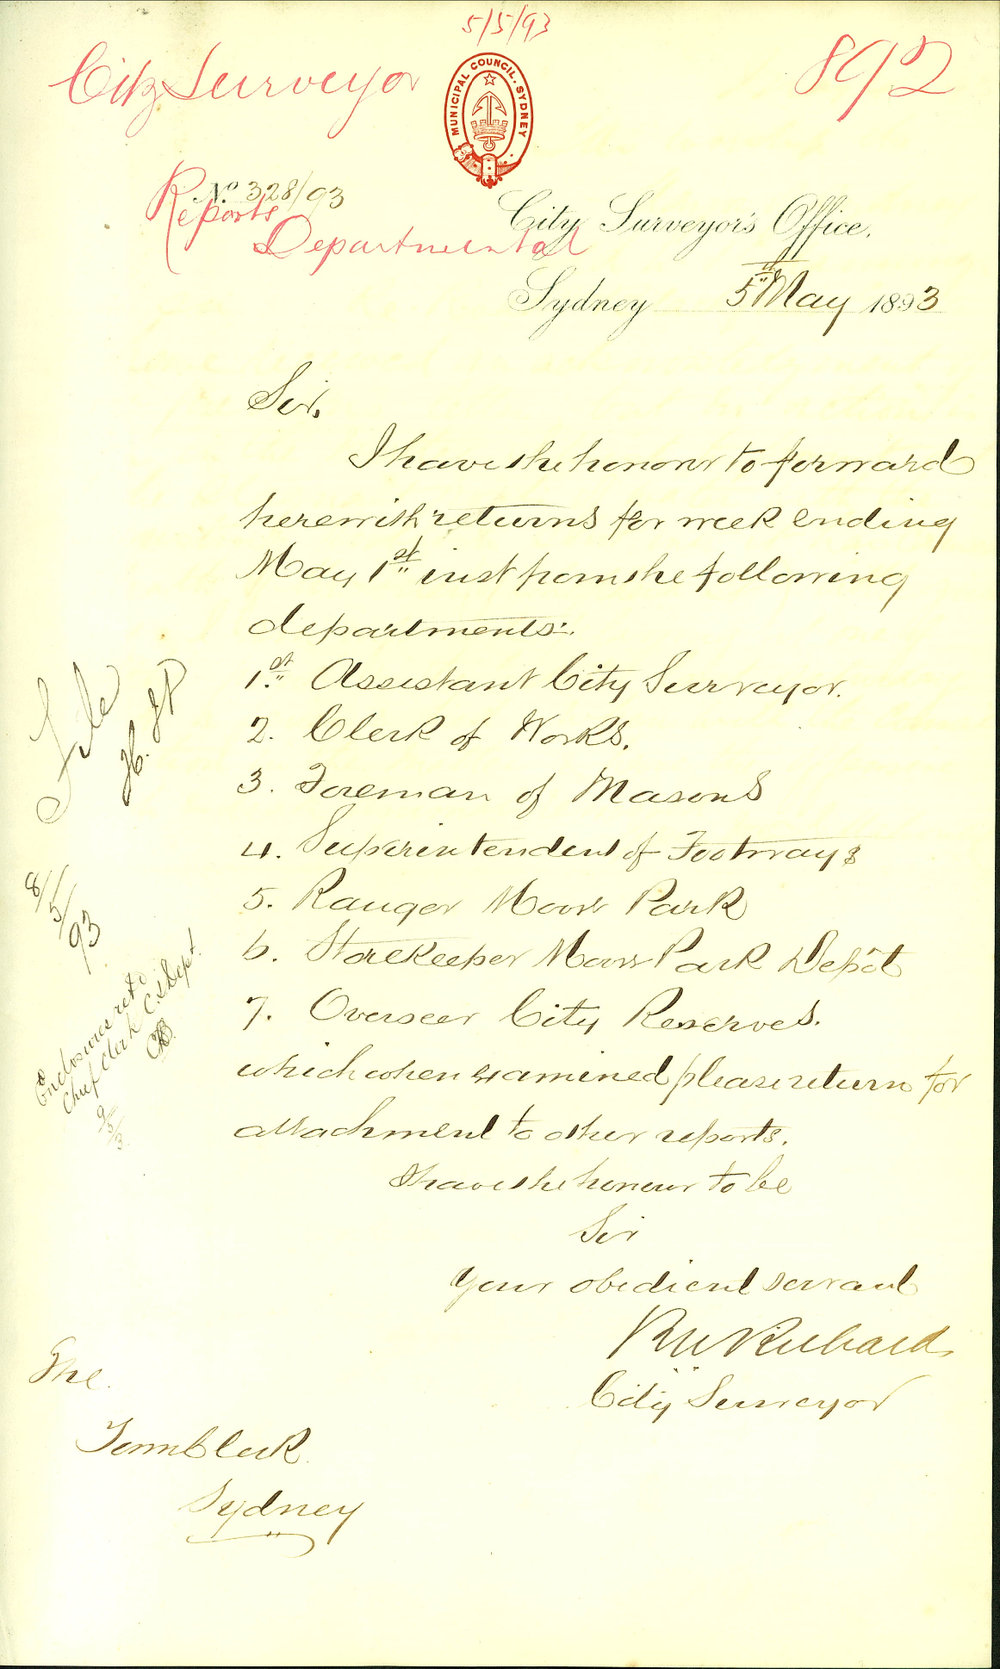 5/5/93
City Surveyor
892
MUNICIPAL COUNCIL. SYDNEY
No. 328/93
Reports
Departmental
City Surveyor's Office,
Sydney 5th May 1893
Sir,
I have the honour to forward
herewith returns for week ending
May 1st inst from the following
departments:.
1st Assistant City Surveyor.
2. Clerk of Works.
3. Foreman of Masons
4. Superintendent of Footways
5. Ranger Moore Park
6. Storekeeper Moore Park Depôt
7. Overseer City Reserves.
which when examined please return for
attachment to other reports.
I have the honour to be
Sir
Your obedient servant
R W Richards
City Surveyor
The
Town Clerk
Sydney
File
8/5/93
Enclosures retd
Chief Clerk C.S. Dept.
9/5/3